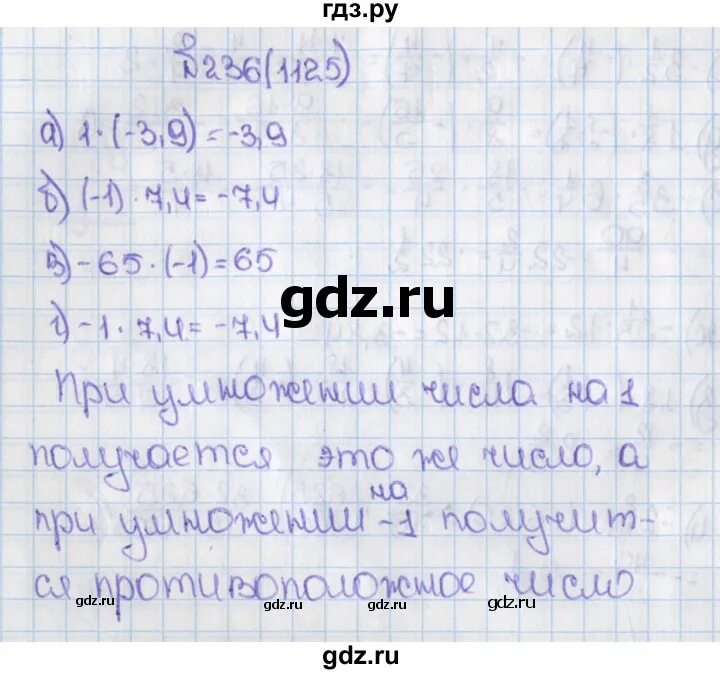 гдз.ру
№236(1125)
а) 1·(-3,9)=-3,9
б) (-1)·7,4=-7,4
в) -65·(-1)=65
г) -1·7,4=-7,4
gdz.ru
При умножении числа на 1
получается это же число, а
на
при умножении -1 получит-
ся противоположное число
gdz.ru gdz.ru gdz.ru gdz.ru
gdz.ru